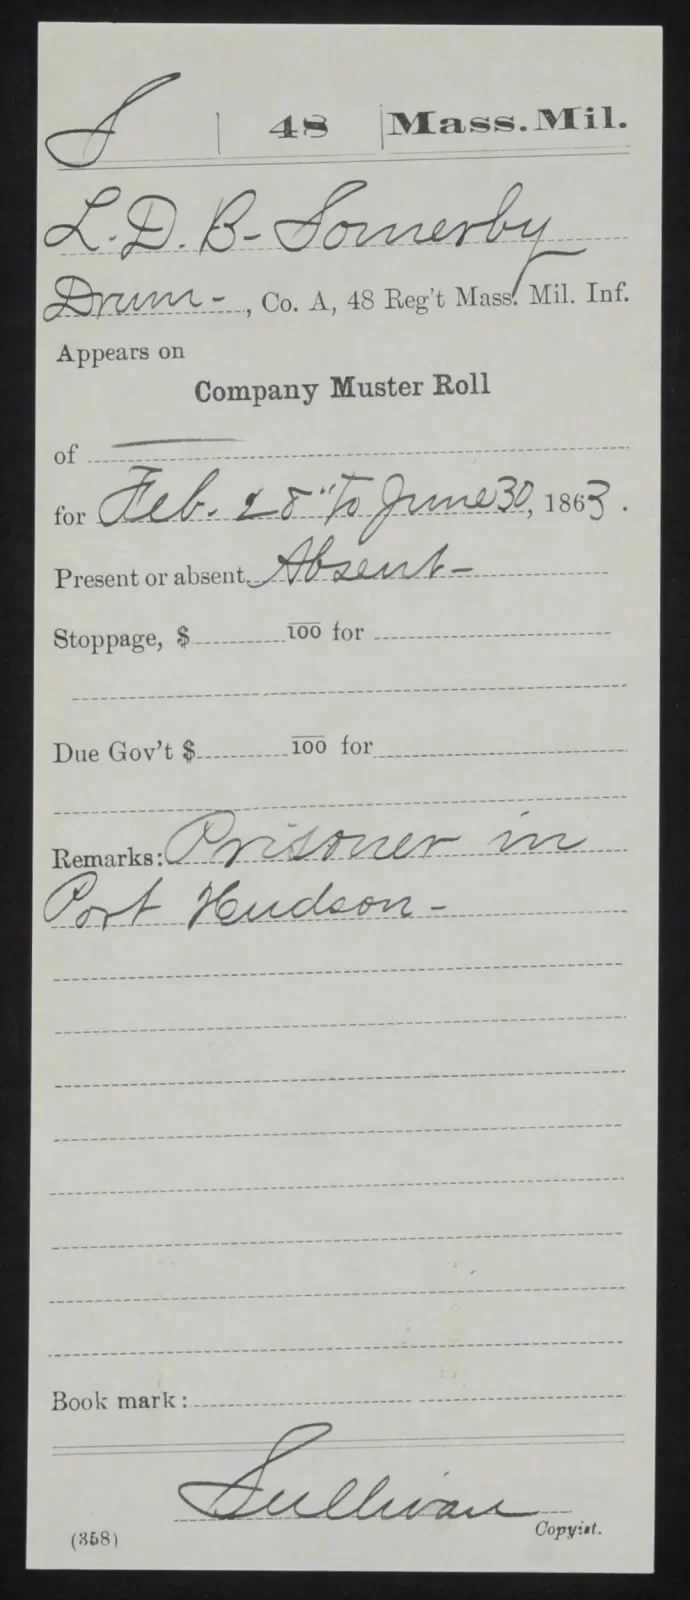 S | 48 | Mass. Mil.
L. D. B- Somerby
Drum-, Co. A, 48 Reg't Mass. Mil. Inf.
Appears on
Company Muster Roll
of
for Feb. 28" To June 30, 1863.
Present or absent Absent-
Stoppage, $ 100 for
Due Gov't $ 100 for
Remarks: Prisoner in
Port Hudson-
Book mark:
Sullivan
(358) Copyist.